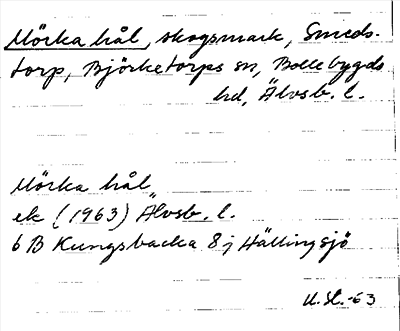 Mörka hål, skogsmark, Smeds-
torp, Björketorps sn, Bollebygds
hd, Älvsb. l.
Mörka hål
ek (1963) Älvsb. l.
6 B Kungsbacka 8 j Hällingsjö
-63